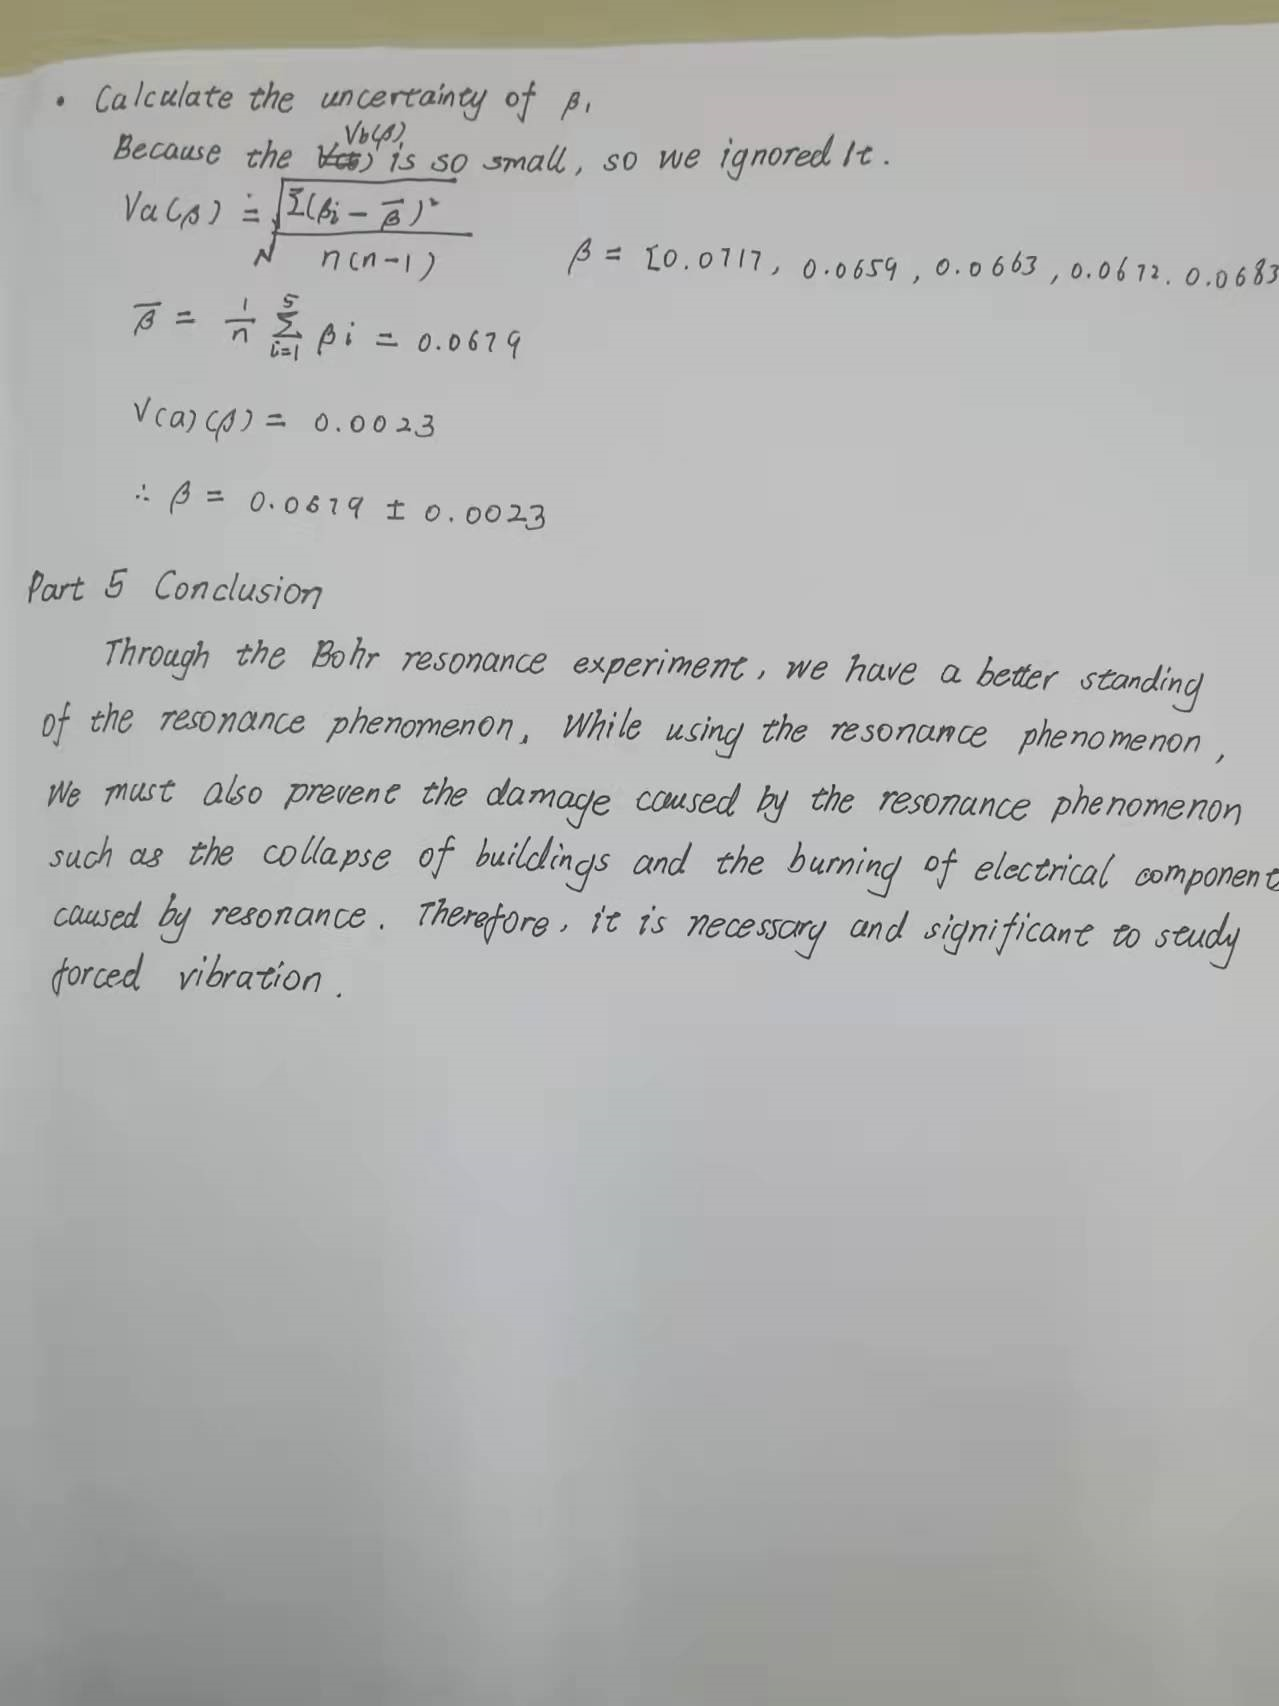 • Calculate the uncertainty of β,
Vb(β)
Because the is so small, so we ignored It.
Va(β) = √Σ(βi - β̅)²
n(n-1)
β = [0.0717, 0.0659, 0.0663, 0.0672. 0.0683
β̅ = 1/n Σ5i=1 βi = 0.0679
V(a)(β) = 0.0023
∴ β = 0.0679 ± 0.0023
Part 5 Conclusion
Through the Bohr resonance experiment, we have a better standing
of the resonance phenomenon, While using the resonance phenomenon,
We must also prevent the damage caused by the resonance phenomenon
such as the collapse of buildings and the burning of electrical component
caused by resonance. Therefore, it is necessary and significant to study
forced vibration.